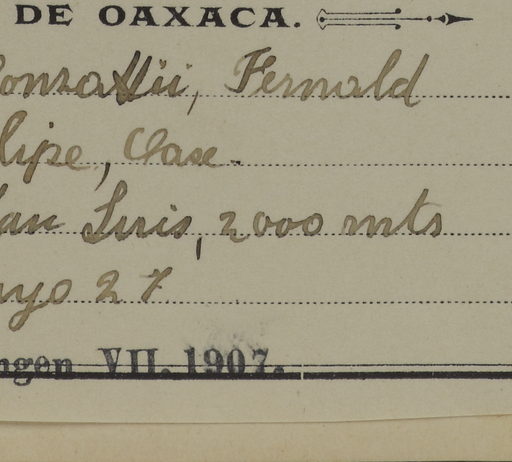 DE OAXACA.
onzattii, Fernald
lipe, Oax.
an Luis, 2000 mts
yo 27
ngen VII. 1907.